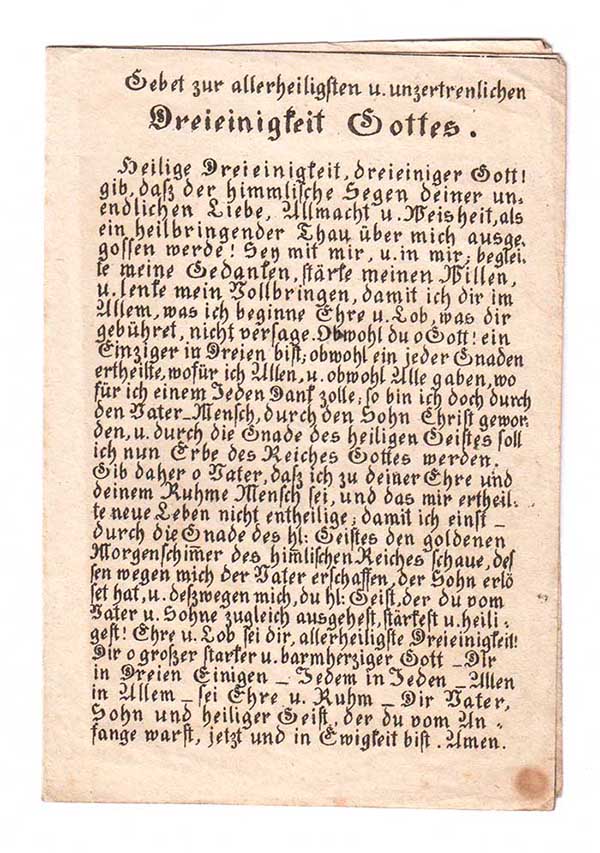 Gebet zur allerheiligsten u. unzertrenlichen
Dreieinigkeit Gottes.
Heilige Dreieinigkeit, dreieiniger Gott!
gib, daß der himmlische Segen deiner un-
endlichen Liebe, Allmacht u. Weisheit, als
ein heilbringender Thau über mich ausge-
gossen werde! Sey mit mir, u. in mir; beglei-
te meine Gedanken, stärke meinen Willen,
u. lenke mein Vollbringen, damit ich dir im
Allem, was ich beginne Ehre u. Lob, was dir
gebühret, nicht versage. Obwohl du o Gott! ein
Einziger in Dreien bist; obwohl ein jeder Gnaden
ertheilte, wofür ich Allen, u. obwohl Alle gaben, wo
für ich einem Jeden Dank zolle; so bin ich doch durch
den Vater-Mensch, durch den Sohn Christ gewor-
den, u. durch die Gnade des heiligen Geistes soll
ich nun Erbe des Reiches Gottes werden.
Gib daher o Vater, daß ich zu deiner Ehre und
deinem Ruhme Mensch sei, und das mir ertheil-
te neue Leben nicht entheilige; damit ich einst –
durch die Gnade des hl: Geistes den goldenen
Morgenschim̅er des him̅lischen Reiches schaue, des
sen wegen mich der Vater erschaffen, der Sohn erlö
set hat, u. deßzwegen mich, du hl: Geist, der du vom
Vater u. Sohne zugleich ausgehest, stärkest u. heili-
gest! Ehre u. Lob sei dir, allerheiligste Dreieinigkeit!
Dir o großer starker u. barmherziger Gott – Dir
in Dreien Einigen – Jedem in Jeden – Allen
in Allem – sei Ehre u. Ruhm – Dir Vater,
Sohn und heiliger Geist, der du vom An-
fange warst, jetzt und in Ewigkeit bist. Amen.